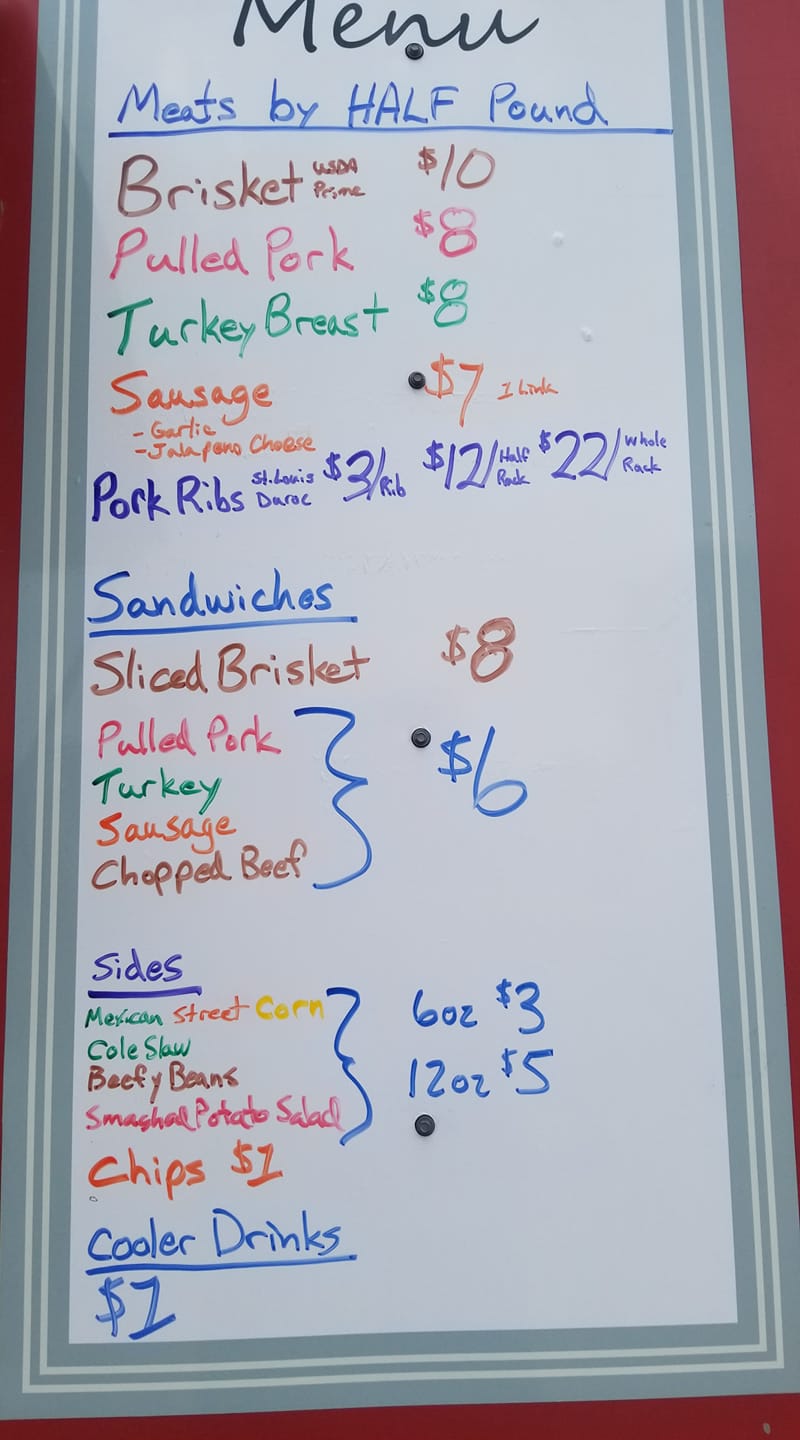 Menu
Meats by HALF Pound
Brisket USDA Prime $10
Pulled Pork $8
Turkey Breast $8
Sausage $7 1 Link
- Garlic
- Jalapeno Cheese
Pork Ribs St. Louis Duroc $3/Rib $12/Half Rack $22/Whole Rack
Sandwiches
Sliced Brisket $8
Pulled Pork
Turkey
Sausage
Chopped Beef
$6
Sides
Mexican Street Corn
Cole Slaw
Beefy Beans
Smashed Potato Salad
6oz $3
12oz $5
Chips $1
Cooler Drinks
$1